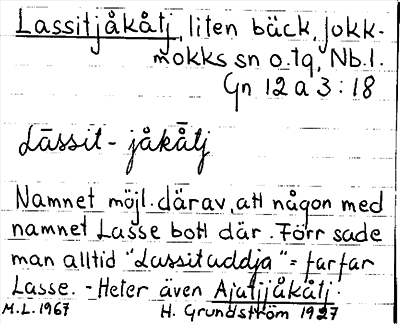 Lassitjåkåtj, liten bäck, Jokk-
mokks sn o. tg, Nb.l.
Gn 12 a 3:18
Lāssit-jåkåtj
Namnet möjl. därav, att någon med
namnet Lasse bott där. Förr sade
man alltid "Lassitaddja" = farfar
Lasse. - Heter även Ajatjjåkåtj.
M.L. 1967 H. Grundström 1927